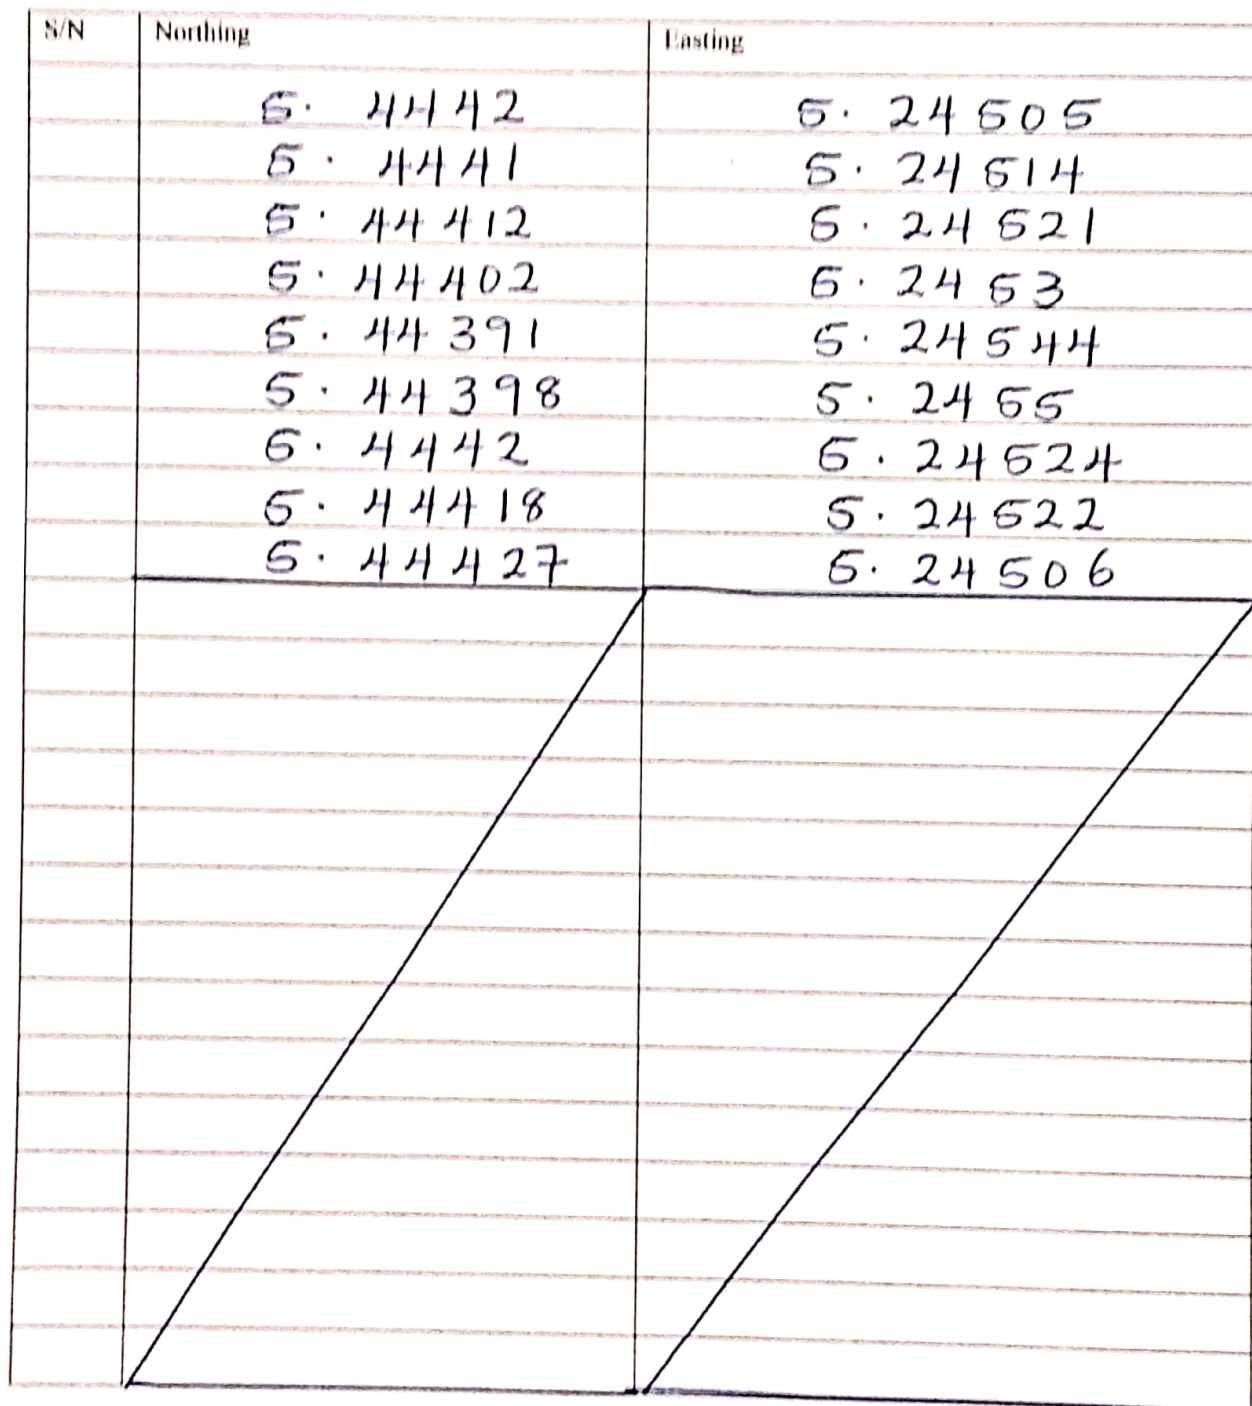 S/N Northing Easting
5. 4442 5. 24505
5. 4441 5. 24514
5. 44412 5. 24521
5. 44402 5. 2453
5. 44391 5. 24544
5. 44398 5. 2455
5. 4442 5. 24524
5. 44418 5. 24522
5. 44427 5. 24506